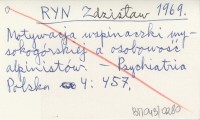 RYN Zdzisław 1969.
Motywacja wspinaczki wy-
sokogórskiej a osobowość
alpinistów. - Psychiatria
Polska 4: 457.